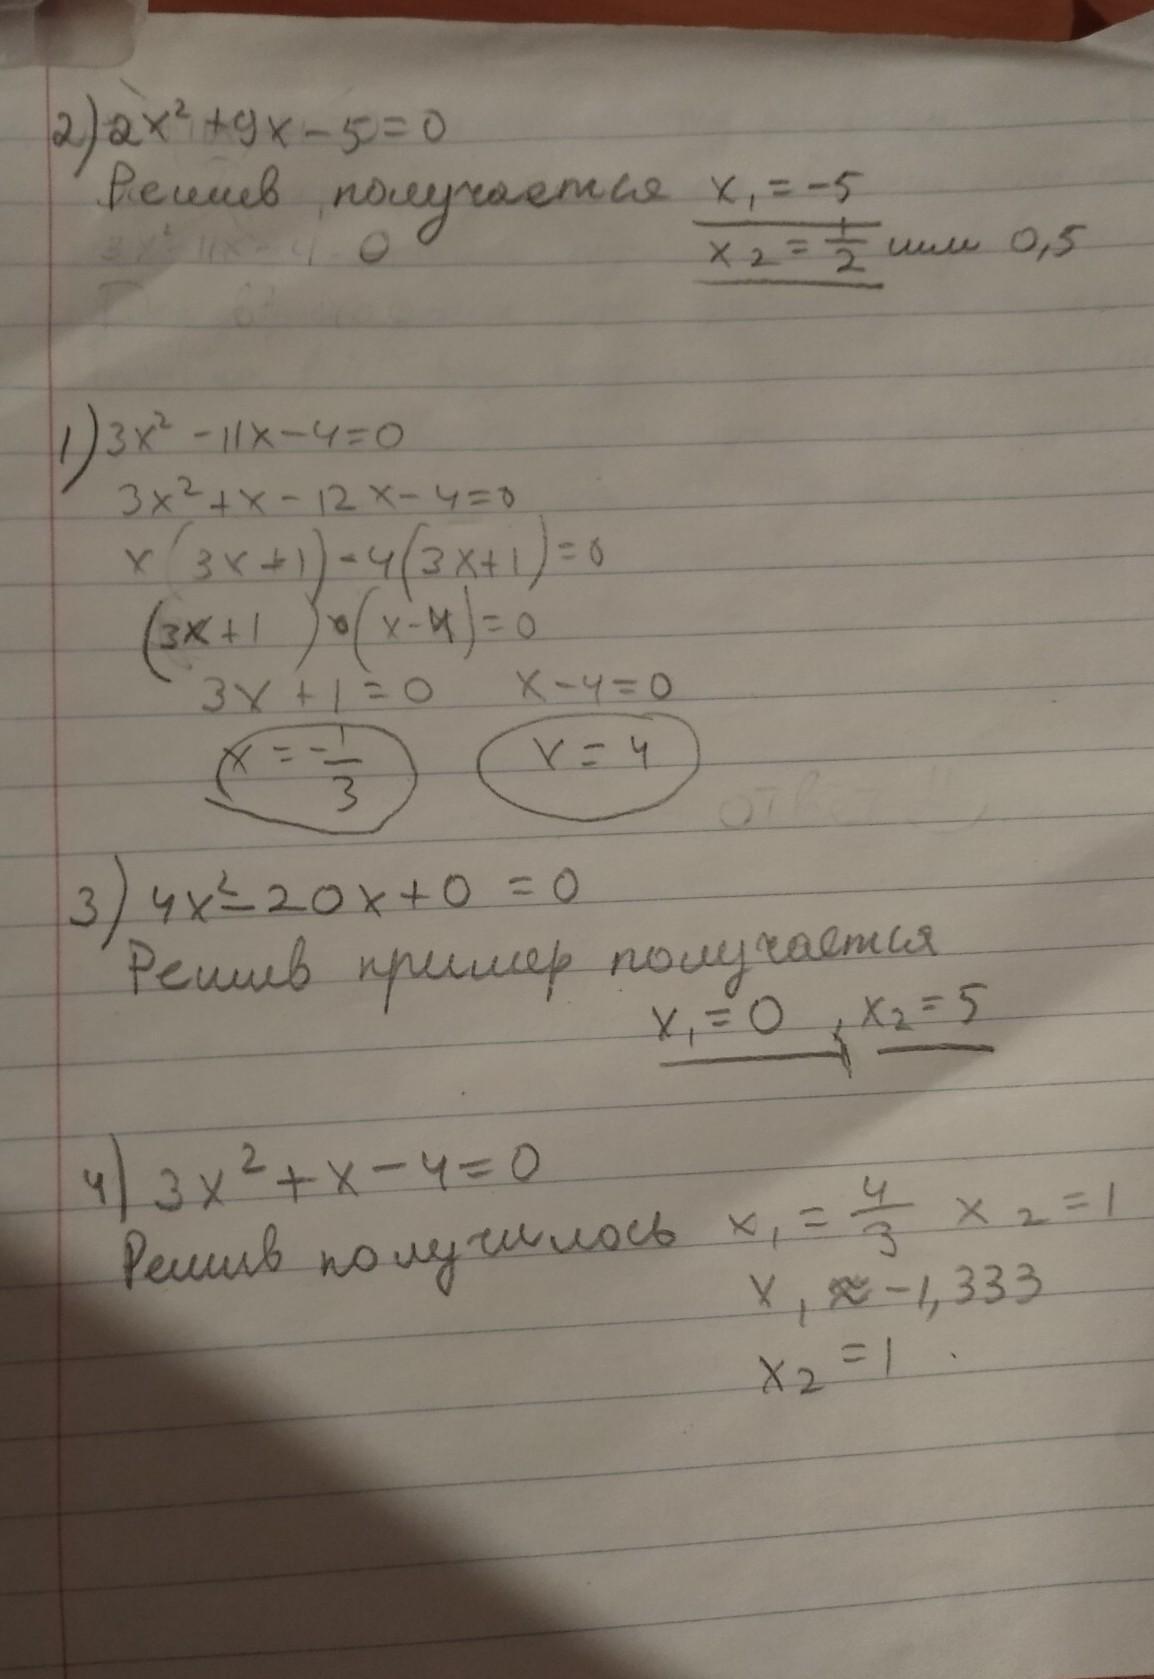 2) 2x² + 9x - 5 = 0
Решив получается x₁ = -5
3x² 11x - 4 0 x₂ = 1/2 или 0,5
1) 3x² - 11x - 4 = 0
3x² + x - 12x - 4 = 0
x(3x + 1) - 4(3x + 1) = 0
(3x + 1) • (x - 4) = 0
3x + 1 = 0 x - 4 = 0
x = -1/3 x = 4
ответ
3) 4x² - 20x + 0 = 0
Решив пример получается
x₁ = 0 , x₂ = 5
4) 3x² + x - 4 = 0
Решив получилось x₁ = 4/3 x₂ = 1
x₁ ≈ -1,333
x₂ = 1 .